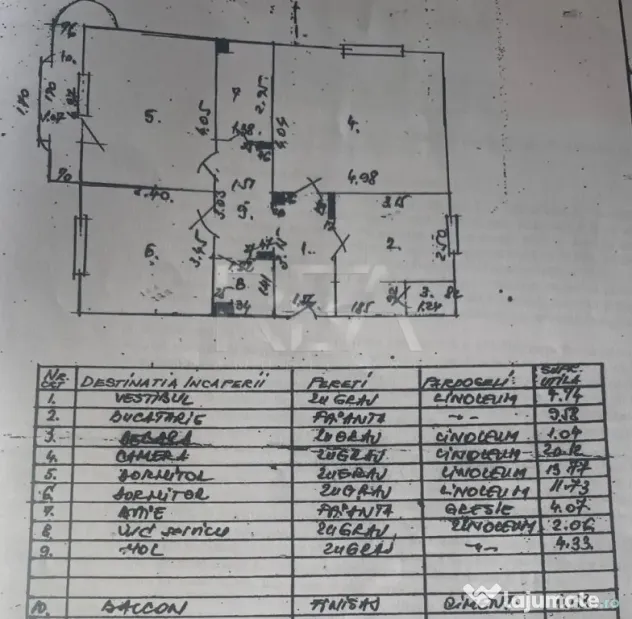 5.
4.05
7
2.95
4.04
4.
4.98
3.40
3.03
9.
3.15
6.
3.45
1.32
8
1.41
1.
2.
2.50
3.
1.24
82
1.85
NR. CRT DESTINATIA INCAPERII PERETI PARDOSELI SUPR. UTILA
1. VESTIBUL ZUGRAV LINOLEUM 4.74
2. BUCATARIE FAIANTA -"- 9.58
3. ZUGRAV LINOLEUM 1.04
4. CAMERA ZUGRAV LINOLEUM 20.12
5. DORMITOR ZUGRAV LINOLEUM 13.77
6. DORMITOR ZUGRAV LINOLEUM 11.73
7. BAIE FAIANTA GRESIE 4.07
8 WC serviciu ZUGRAV LINOLEUM 2.06
9. HOL ZUGRAV -"- 4.33
10. BALCON FINISAJ CIMENT
lajumate.ro